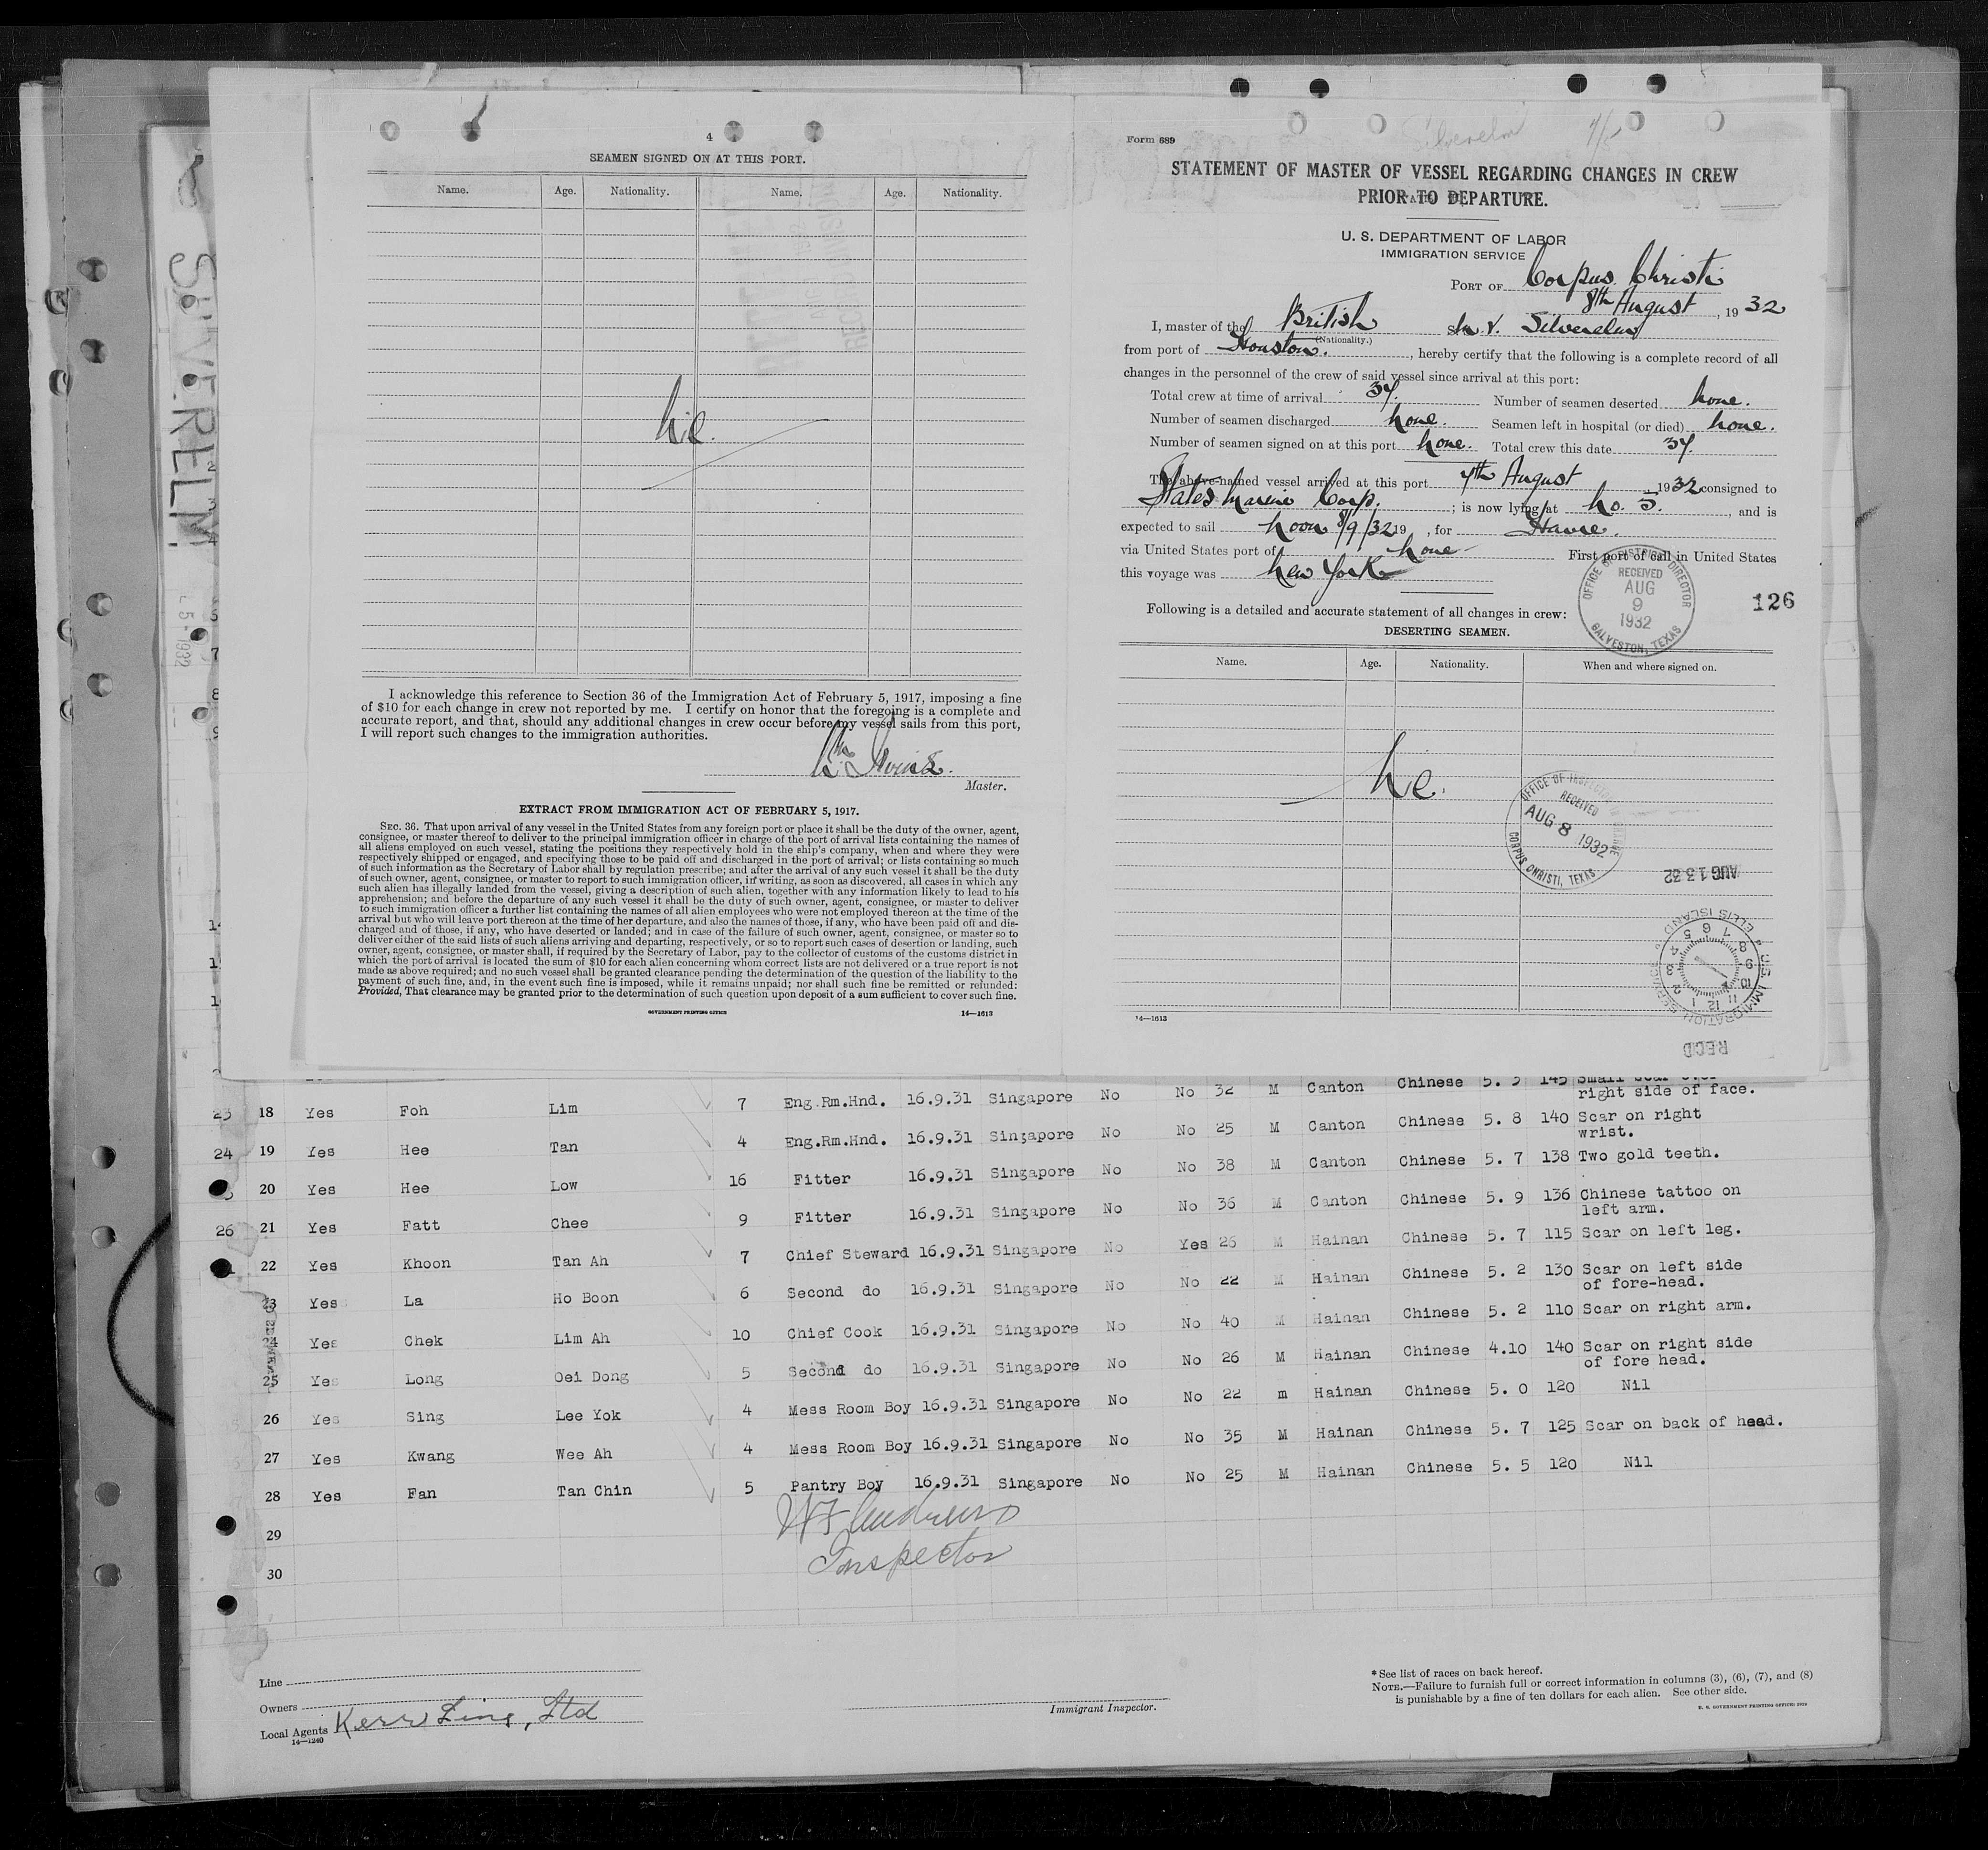 SILVERELM
4
SEAMEN SIGNED ON AT THIS PORT.
Name. Age. Nationality. Name. Age. Nationality.
I acknowledge this reference to Section 36 of the Immigration Act of February 5, 1917, imposing a fine
of $10 for each change in crew not reported by me. I certify on honor that the foregoing is a complete and
accurate report, and that, should any additional changes in crew occur before my vessel sails from this port,
I will report such changes to the immigration authorities.
Master.
EXTRACT FROM IMMIGRATION ACT OF FEBRUARY 5, 1917.
SEC. 36. That upon arrival of any vessel in the United States from any foreign port or place it shall be the duty of the owner, agent,
consignee, or master thereof to deliver to the principal immigration officer in charge of the port of arrival lists containing the names of
all aliens employed on such vessel, stating the positions they respectively hold in the ship's company, when and where they were
respectively shipped or engaged, and specifying those to be paid off and discharged in the port of arrival; or lists containing so much
of such information as the Secretary of Labor shall by regulation prescribe; and after the arrival of any such vessel it shall be the duty
of such owner, agent, consignee, or master to report to such immigration officer, if writing, as soon as discovered, all cases in which any
such alien has illegally landed from the vessel, giving a description of such alien, together with any information likely to lead to his
apprehension; and before the departure of any such vessel it shall be the duty of such owner, agent, consignee, or master to deliver
to such immigration officer a further list containing the names of all alien employees who were not employed thereon at the time of the
arrival but who will leave port thereon at the time of her departure, and also the names of those, if any, who have been paid off and dis-
charged and of those, if any, who have deserted or landed; and in case of the failure of such owner, agent, consignee, or master so to
deliver either of the said lists of such aliens arriving and departing, respectively, or so to report such cases of desertion or landing, such
owner, agent, consignee, or master shall, if required by the Secretary of Labor, pay to the collector of customs of the customs district in
which the port of arrival is located the sum of $10 for each alien concerning whom correct lists are not delivered or a true report is not
made as above required; and no such vessel shall be granted clearance pending the determination of the question of the liability to the
payment of such fine, and, in the event such fine is imposed, while it remains unpaid; nor shall such fine be remitted or refunded:
Provided, That clearance may be granted prior to the determination of such question upon deposit of a sum sufficient to cover such fine.
GOVERNMENT PRINTING OFFICE 14—1613
Form 689
STATEMENT OF MASTER OF VESSEL REGARDING CHANGES IN CREW
PRIOR TO DEPARTURE.
U. S. DEPARTMENT OF LABOR
IMMIGRATION SERVICE
PORT OF Corpus Christi
8th August, 1932
I, master of the British M.V. Silverelm
(Nationality.)
from port of Houston., hereby certify that the following is a complete record of all
changes in the personnel of the crew of said vessel since arrival at this port:
Total crew at time of arrival 37. Number of seamen deserted none.
Number of seamen discharged none. Seamen left in hospital (or died) none.
Number of seamen signed on at this port none. Total crew this date 37.
The above-named vessel arrived at this port 7th August, 1932 consigned to
States Marine Corp.; is now lying at No. 5., and is
expected to sail noon 8/9/32 19 , for Havre.
via United States port of none First port of call in United States
this voyage was New York
OFFICE OF DISTRICT DIRECTOR RECEIVED AUG 9 1932 GALVESTON, TEXAS
126
Following is a detailed and accurate statement of all changes in crew:
DESERTING SEAMEN.
Name. Age. Nationality. When and where signed on.
RECEIVED AUG 8 1932 CORPUS CHRISTI, TEXAS
AUG 13 32
U.S. IMMIGRATION SERVICE ELLIS ISLAND
REC'D
14—1613
right side of face.
23 18 Yes Foh Lim 7 Eng.Rm.Hnd. 16.9.31 Singapore No No 32 M Canton Chinese 5. 5 145 Small scar over
24 19 Yes Hee Tan 4 Eng.Rm.Hnd. 16.9.31 Singapore No No 25 M Canton Chinese 5. 8 140 Scar on right
wrist.
20 Yes Hee Low 16 Fitter 16.9.31 Singapore No No 38 M Canton Chinese 5. 7 138 Two gold teeth.
26 21 Yes Fatt Chee 9 Fitter 16.9.31 Singapore No No 36 M Canton Chinese 5. 9 136 Chinese tattoo on
left arm.
22 Yes Khoon Tan Ah 7 Chief Steward 16.9.31 Singapore No Yes 26 M Hainan Chinese 5. 7 115 Scar on left leg.
23 Yes La Ho Boon 6 Second do 16.9.31 Singapore No No 22 M Hainan Chinese 5. 2 130 Scar on left side
of fore-head.
24 Yes Chek Lim Ah 10 Chief Cook 16.9.31 Singapore No No 40 M Hainan Chinese 5. 2 110 Scar on right arm.
25 Yes Long Oei Dong 5 Second do 16.9.31 Singapore No No 26 M Hainan Chinese 4.10 140 Scar on right side
of fore head.
26 Yes Sing Lee Yok 4 Mess Room Boy 16.9.31 Singapore No No 22 m Hainan Chinese 5. 0 120 Nil
27 Yes Kwang Wee Ah 4 Mess Room Boy 16.9.31 Singapore No No 35 M Hainan Chinese 5. 7 125 Scar on back of head.
28 Yes Fan Tan Chin 5 Pantry Boy 16.9.31 Singapore No No 25 M Hainan Chinese 5. 5 120 Nil
29
30
Inspector
Line
Owners
Local Agents Kerr Line, Ltd
14—1240
Immigrant Inspector.
* See list of races on back hereof.
NOTE.—Failure to furnish full or correct information in columns (3), (6), (7), and (8)
is punishable by a fine of ten dollars for each alien. See other side.
U. S. GOVERNMENT PRINTING OFFICE: 1929